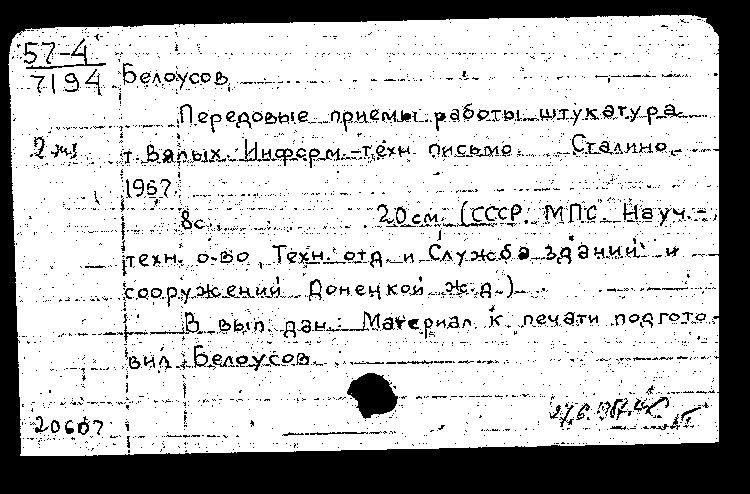 57-4
7194 Белоусов
Передовые приемы работы штукатура
2 экз т. Вялых. Информ.-техн. письмо. Сталино,
1957.
8с. 20см. (СССР. МПС. Науч.-
техн. о-во, Техн. отд. и Служба зданий и
сооружений Донецкой ж.д.)
В вып. дан.: Материал к печати подгото-
вил Белоусов.
20607